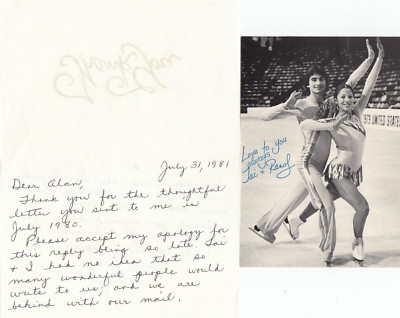 July 31, 1981
Dear Alan,
Thank you for the thoughtful
letter you sent to me in
July 1980.
Please accept my apology for
this reply being so late. Tai
& I had no idea that so
many wonderful people would
write to us, and we are
behind with our mail.
Thank You
Love to you
always
Tai & Randy
1979 UNITED STATES